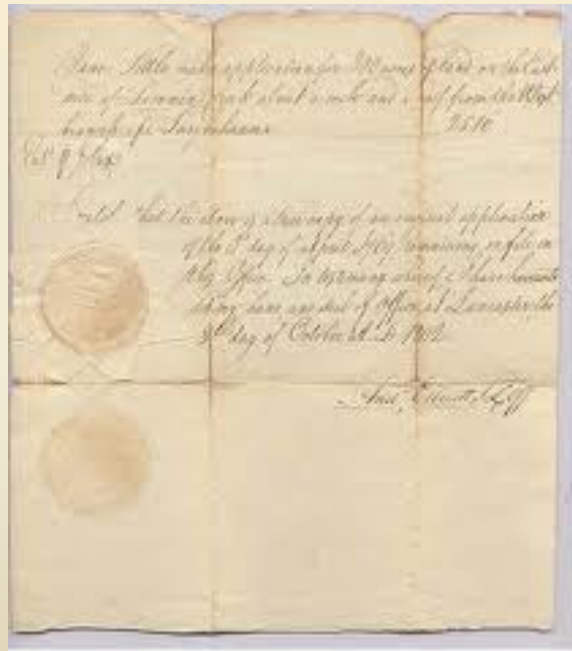 Little makes application for 300 acres of land on the East
side of about a mile and a half from the West
branch of Susquehanna 2510
I Certify that the above is a true copy of an original application
of the 3d day of April 1769 remaining on file in
my Office. In testimony whereof I have hereunto
set my hand and seal of Office at Lancaster, the
day of October A.D. 1802
And. Ellicott